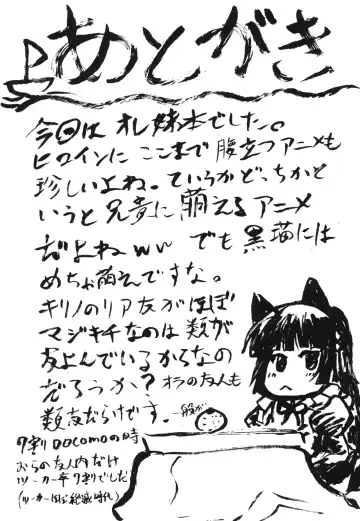 あとがき
今回は オレ妹本でした。
ヒロインに ここまで 腹立つアニメも
珍しいよね。ていうかどっちかと
いうと 兄貴に 萌えるアニメ
だよねwww でも 黒猫には
めちゃ萌えですな。
キリノのリア友がほぼ
マジキチなのは 類が
友よんでいるからなの
だろうか？ オラの友人も
類友だらけです。一般が
9割 DOCOMOの時
おらの友人内だけ
ツーカー率 9割でした